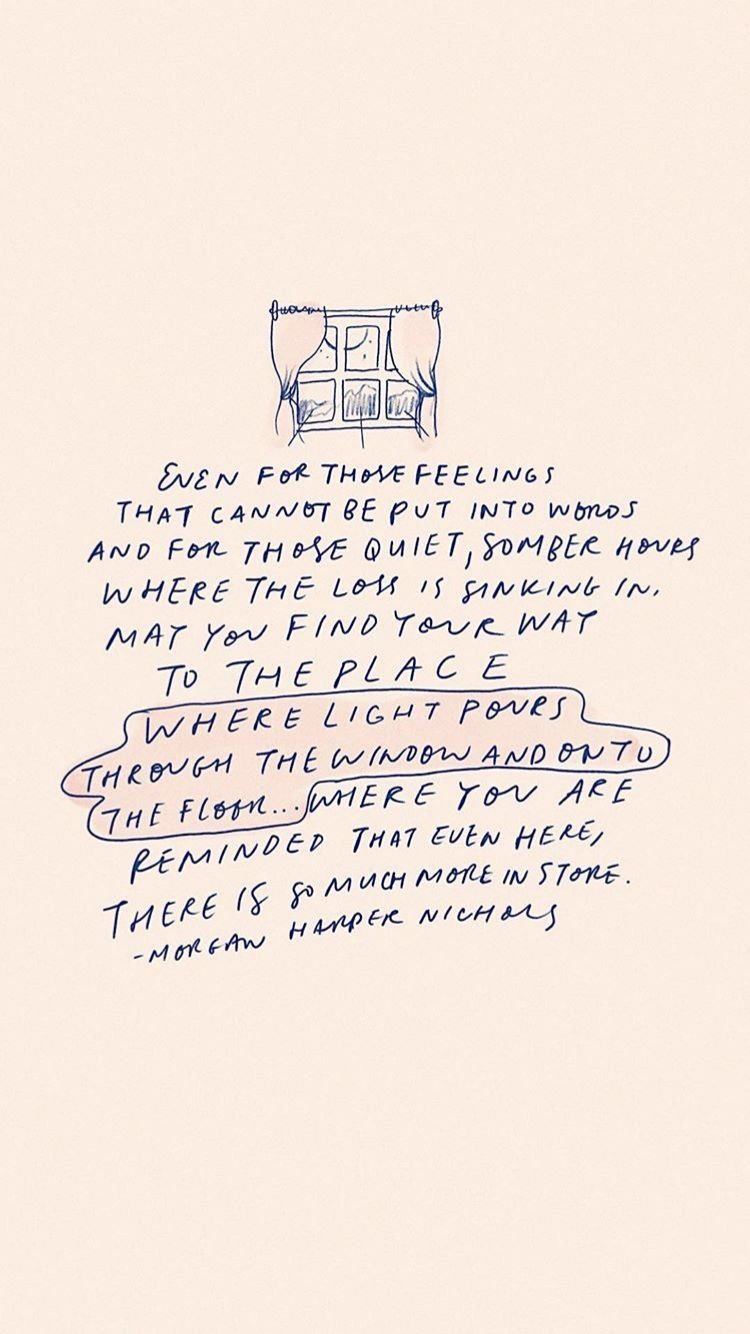 EVEN FOR THOSE FEELINGS
THAT CANNOT BE PUT INTO WORDS
AND FOR THOSE QUIET, SOMBER HOURS
WHERE THE LOSS IS SINKING IN.
MAY YOU FIND YOUR WAY
TO THE PLACE
WHERE LIGHT POURS
THROUGH THE WINDOW AND ONTO
THE FLOOR... WHERE YOU ARE
REMINDED THAT EVEN HERE,
THERE IS SO MUCH MORE IN STORE.
-MORGAN HARPER NICHOLS